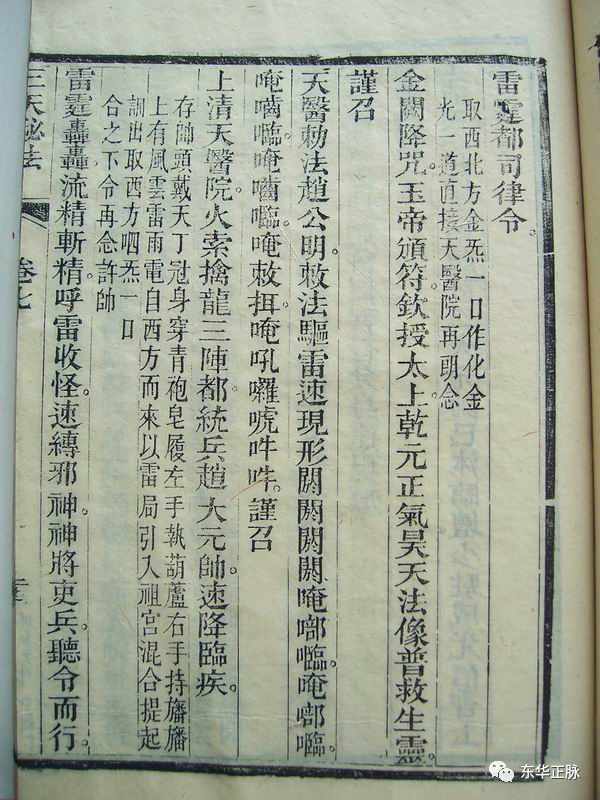 雷霆都司律令。
取西北方金炁一口作化金
光一道直接天醫院再明念
金闕降咒。玉帝頒符。欽授太上。乾元正氣。昊天法像。普救生靈。
謹召
天醫勅法趙公明。敕法驅雷速現形。闕闕闕闕。唵啷㘕。唵啷㘕。
唵嚙㘕。唵嚙㘕。唵敕揖唵吼囉唬吽吽。謹召
上清天醫院。火索擒龍三陣都統兵。趙大元帥。速降臨疾。
存帥頭戴天丁冠身穿青袍皂履左手執葫蘆右手持旛旛
上有風雲雷雨電自西方而來以雷局引入祖宮混合提起
訣出取西方呬炁一口
合之下令再念許帥
雷霆轟轟。流精斬精。呼雷收怪。速縛邪神。神將吏兵。聽令而行。
三天祕法
卷七
東华正脉